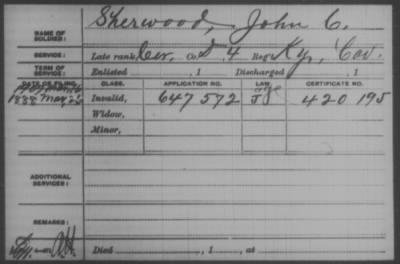 NAME OF SOLDIER: Sherwood, John C.
SERVICE: Late rank, Co. 4 Reg't Ky. Cav.
TERM OF SERVICE: Enlisted , 1 Discharged , 1
DATE OF FILING. CLASS. APPLICATION NO. LAW. CERTIFICATE NO.
age
1888 May 22 Invalid, 647572 420195
Widow,
Minor,
ADDITIONAL SERVICES:
REMARKS:
Died , 1 , at